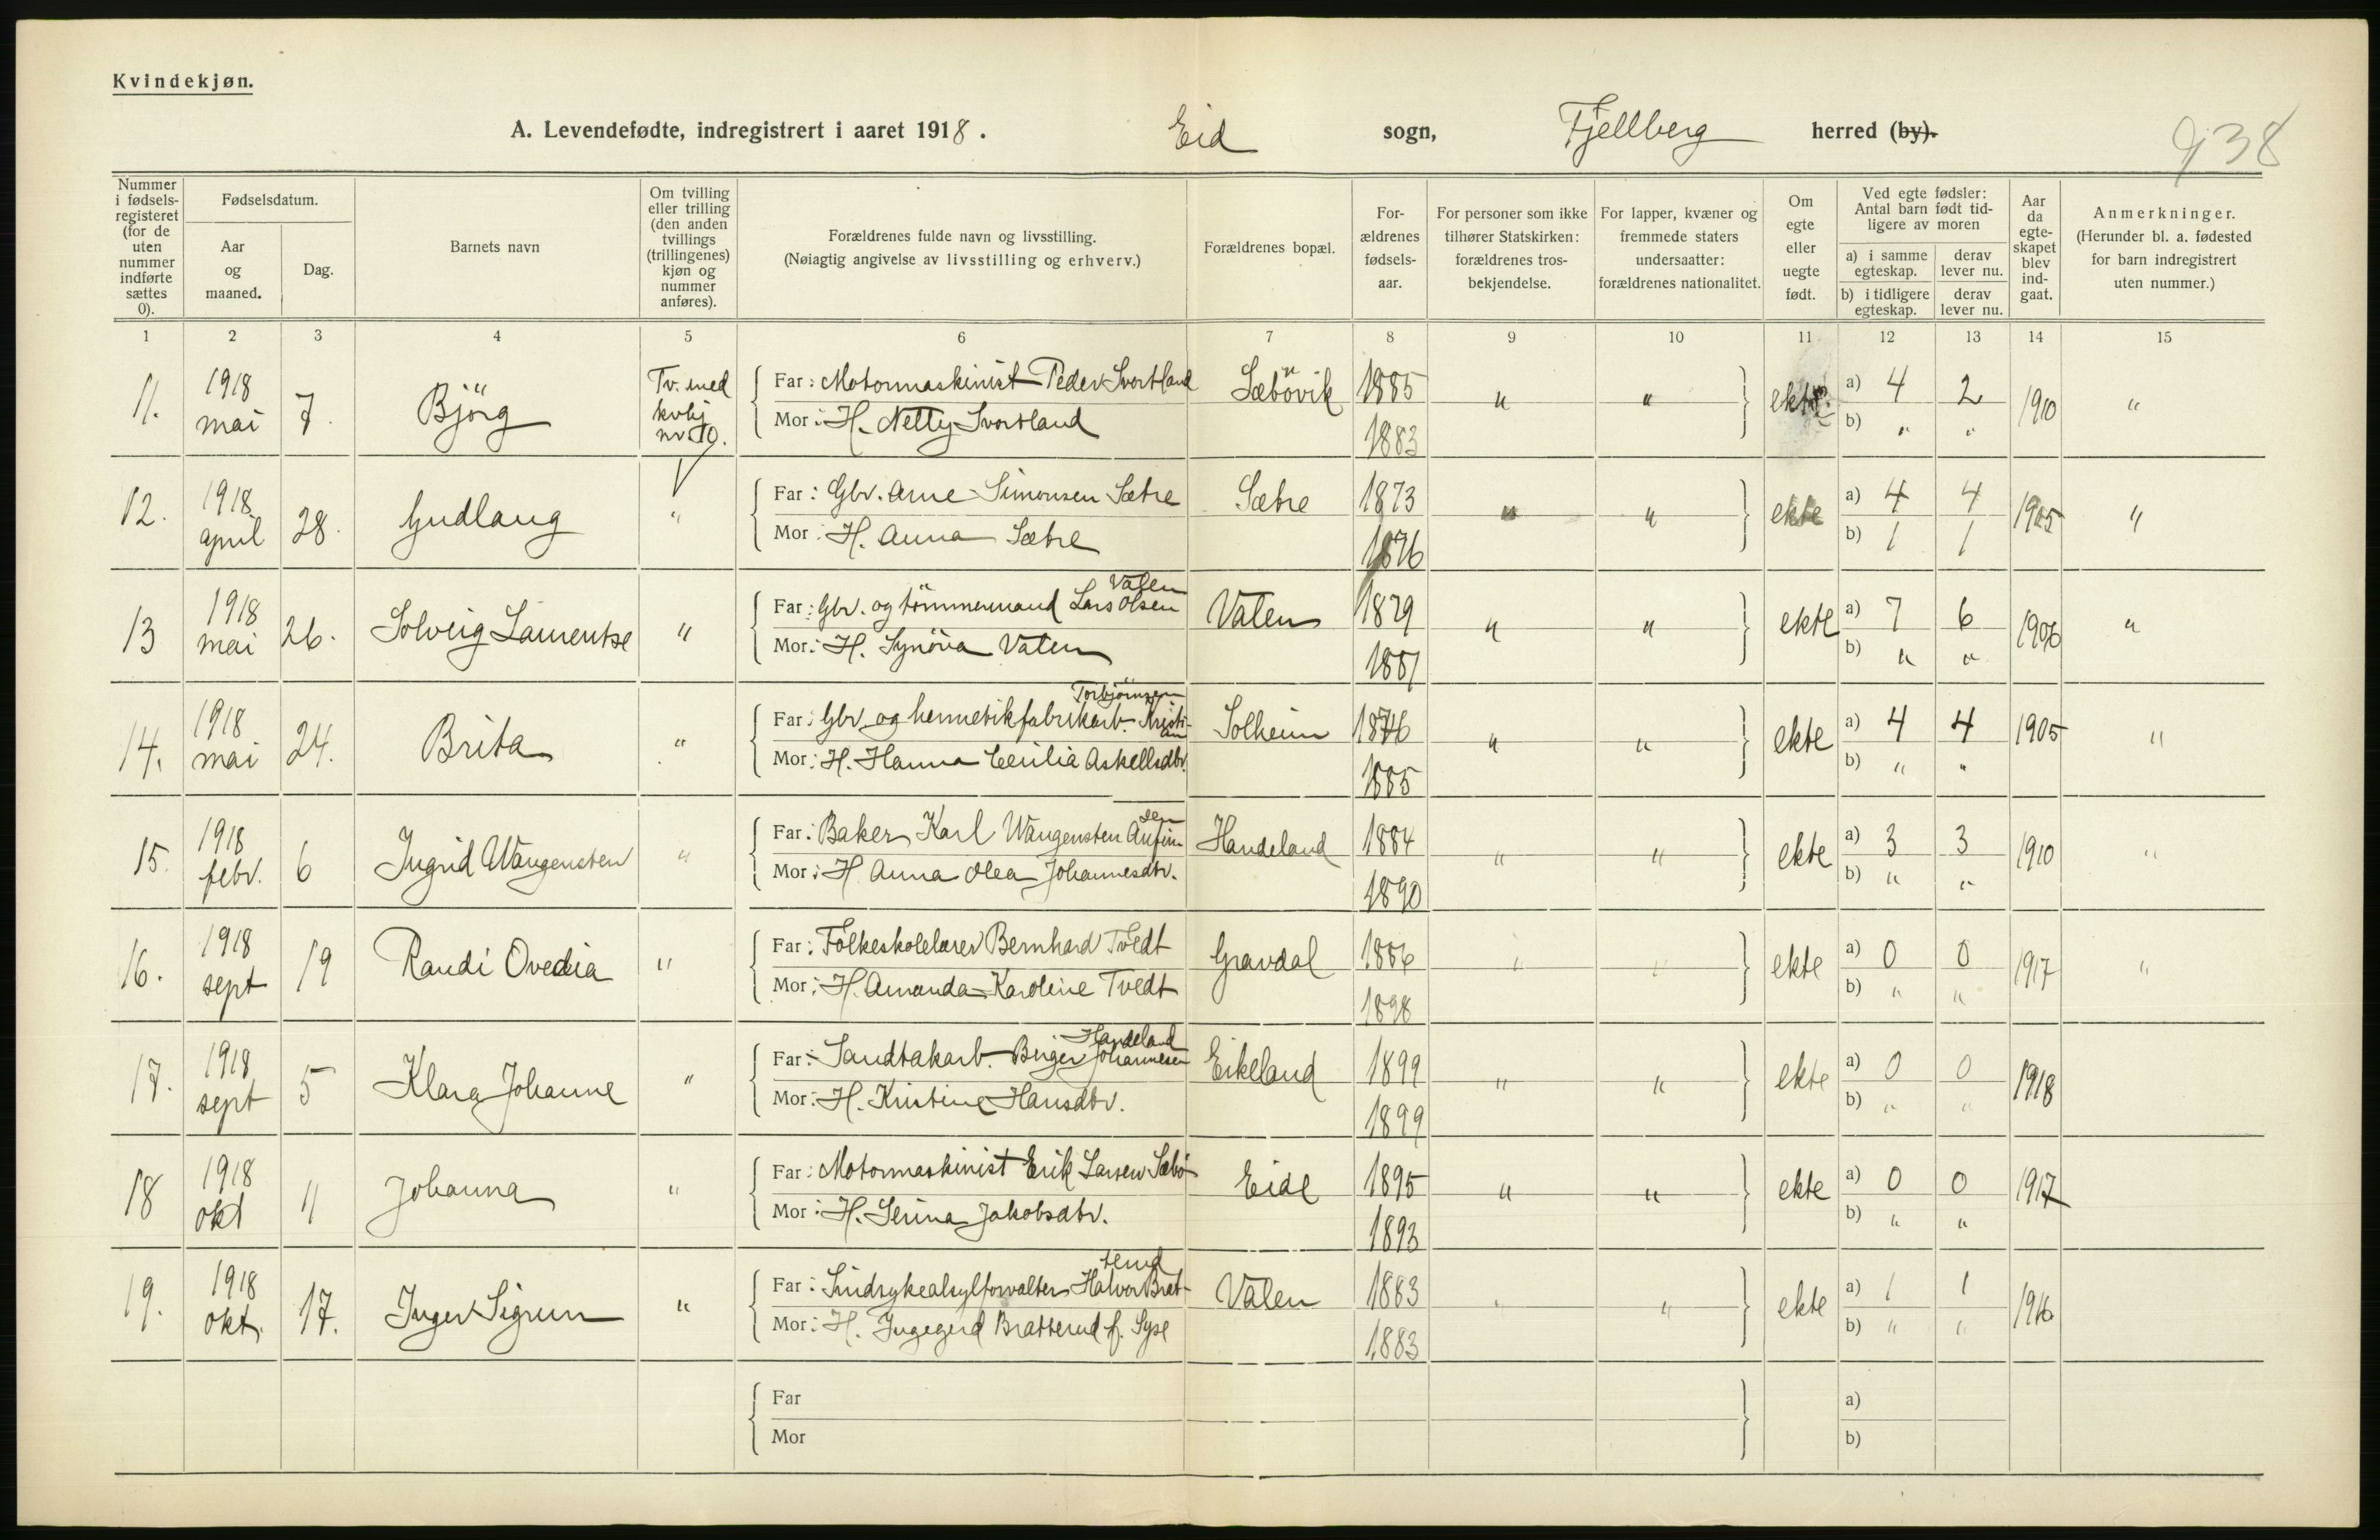 Kvindekjøn.
A. Levendefødte, indregistrert i aaret 1918. Eid sogn, Fjellberg herred (by).
938
Nummer i fødselsregisteret (for de uten nummer indførte sættes 0).
Fødselsdatum.
Aar og maaned.
Dag.
Barnets navn
Om tvilling eller trilling (den anden tvillings (trillingenes) kjøn og nummer anføres).
Forældrenes fulde navn og livsstilling. (Nøiagtig angivelse av livsstilling og erhverv.)
Forældrenes bopæl.
Forældrenes fødselsaar.
For personer som ikke tilhører Statskirken: forældrenes trosbekjendelse.
For lapper, kvæner og fremmede staters undersaatter: forældrenes nationalitet.
Om egte eller uegte født.
Ved egte fødsler: Antal barn født tidligere av moren
a) i samme egteskap. derav lever nu.
b) i tidligere egteskap. derav lever nu.
Aar da egteskapet blev indgaat.
Anmerkninger. (Herunder bl. a. fødested for barn indregistrert uten nummer.)
1 2 3 4 5 6 7 8 9 10 11 12 13 14 15
11. 1918 mai 7. Björg Tv. med kvkj nr. 10. Far: Motormaskinist Peder Svortland Sæbövik 1885 " " ekte a) 4 2 1910 "
Mor: H. Netty Svortland 1883 b) " "
12. 1918 april 28. Gudlaug " Far: Gbr. Arne Simonsen Sætre Sætre 1873 " " ekte a) 4 4 1905 "
Mor: H. Anna Sætre 1876 b) 1 1
13 1918 mai 26. Solveig Laurentse " Far: Gbr. og tömmermand Lars Olsen Valen Valen 1879 " " ekte a) 7 6 1906 "
Mor: H. Synöva Valen 1881 b) " "
14. 1918 mai 24. Brita " Far: Gbr. og hermetikfabrikarb. Kristian Torbjörnsen Solheim 1876 " " ekte a) 4 4 1905 "
Mor: H. Hanna Cecilia Askellsdtr. 1885 b) " "
15. 1918 febr. 6 Ingrid Wangensten " Far: Baker Karl Wangensten Anfinsen Handeland 1884 " " ekte a) 3 3 1910 "
Mor: H. Anna Olea Johannesdtr. 1890 b) " "
16. 1918 sept 19 Randi Ovedia " Far: Folkeskolelærer Bernhard Tvedt Gravdal 1886 " " ekte a) 0 0 1917 "
Mor: H. Amanda Karoline Tvedt 1898 b) " "
17. 1918 sept 5 Klara Johanne " Far: Sandtakarb. Birger Johannesen Handeland Eikeland 1899 " " ekte a) 0 0 1918
Mor: H. Kristine Hansdtr. 1899 b) " "
18 1918 okt 11 Johanna " Far: Motormaskinist Erik Larsen Sæbö Eide 1895 " " ekte a) 0 0 1917
Mor: H. Serina Jakobsdtr. 1893 b) " "
19. 1918 okt. 17. Inger Sigrun " Far: Sindsykeasylforvalter Halvor Bratterud Valen 1883 " " ekte a) 1 1 1916
Mor: H. Ingegerd Bratterud f. Syse 1883 b) " "
Far a)
Mor b)